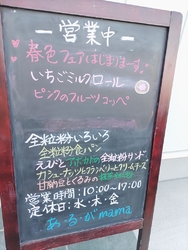 ー営業中ー
春色フェアはじまりまーす
いちごミルクロール
ピンクのフルーツコッペ
全粒粉いろいろ
全粒粉食パン
えびとアボカドの全粒粉サンド
カシューナッツとクランベリーとクリームチーズ
甘納豆とくるみの
営業時間:10:00~17:00
定休日:水・木・金
あ・る・が mama